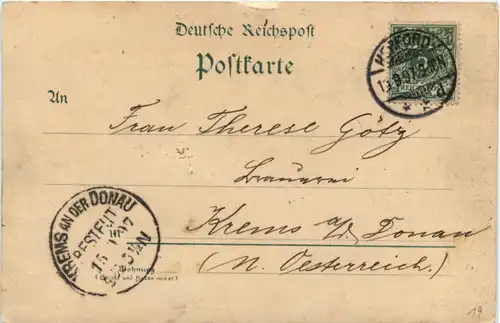 Deutsche Reichspost
Postkarte
An
Frau Therese Götz
Brauerei
Krems a/d. Donau
(N. Oesterreich.)
KREMS AN DER DONAU
BESTELLT
Wohnung
(Straße und Hausnummer)
19